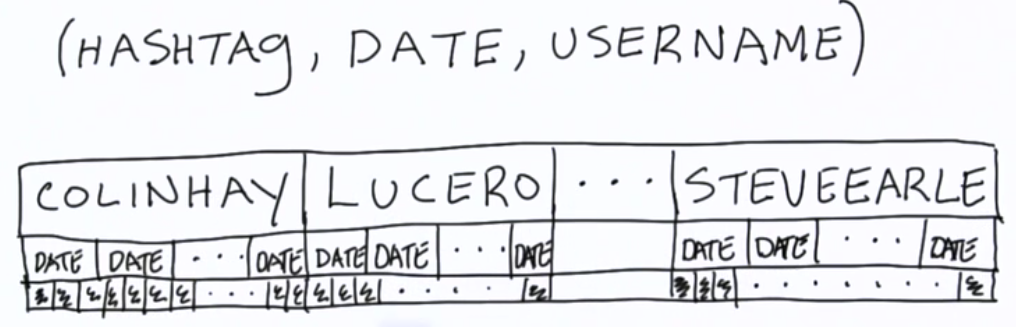 (HASHTAG, DATE, USERNAME)
COLINHAY LUCERO ... STEVEEARLE
DATE DATE ... DATE DATE DATE ... DATE DATE DATE ... DATE